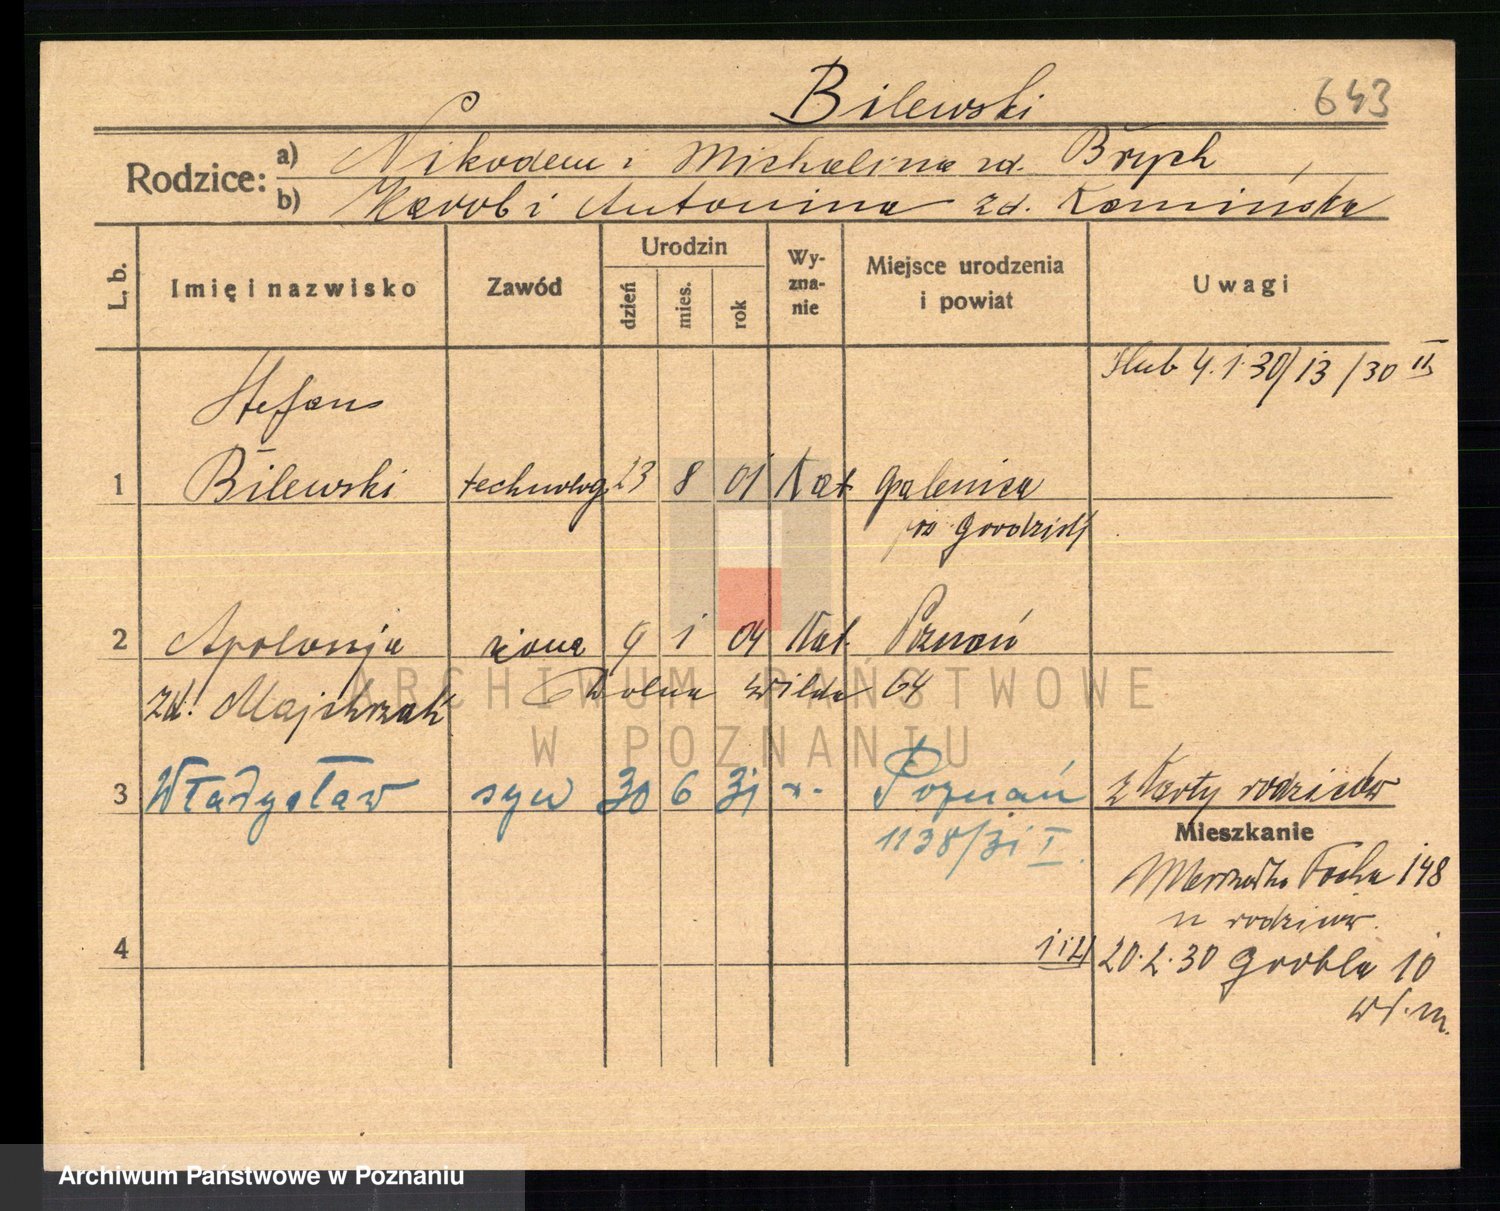 Bilewski 643
Rodzice: a) Nikodem i Michalina zd. Brych
b) Karol i Antonina zd. Kamińska
L. b. Imię i nazwisko Zawód Urodzin dzień mies. rok Wy-zna-nie Miejsce urodzenia i powiat Uwagi
Ślub 4.1.30/13/30 II
Stefan
1 Bilewski technolog 23 8 01 Kat
po Grodzisk
2 Apolonja żona 9 1 04 Kat. Poznań
zd. Majchrzak Dolna Wilda 64
3 Władysław syn 30 6 31 r. Poznań z karty rodziców
1138/31 I.
Mieszkanie
Marszałka Focha 148
u rodziców.
4 1 i 2/ 20.2.30 Grobla 10
wł. m.
ARCHIWUM PAŃSTWOWE
W POZNANIU
Archiwum Państwowe w Poznaniu